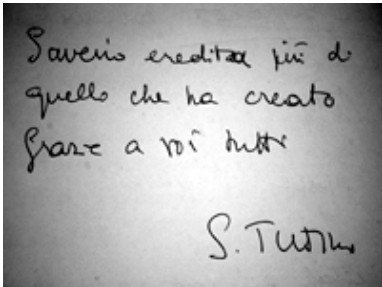 Saverio eredita più di
quello che ha creato
Grazie a voi tutti
S. Tutino